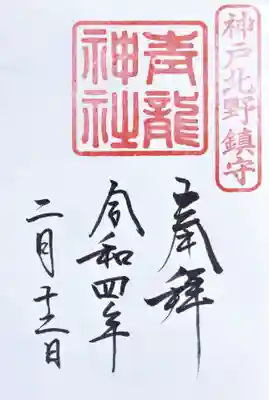 神戸北野鎮守
青龍神社
奉拝
令和四年
二月十三日